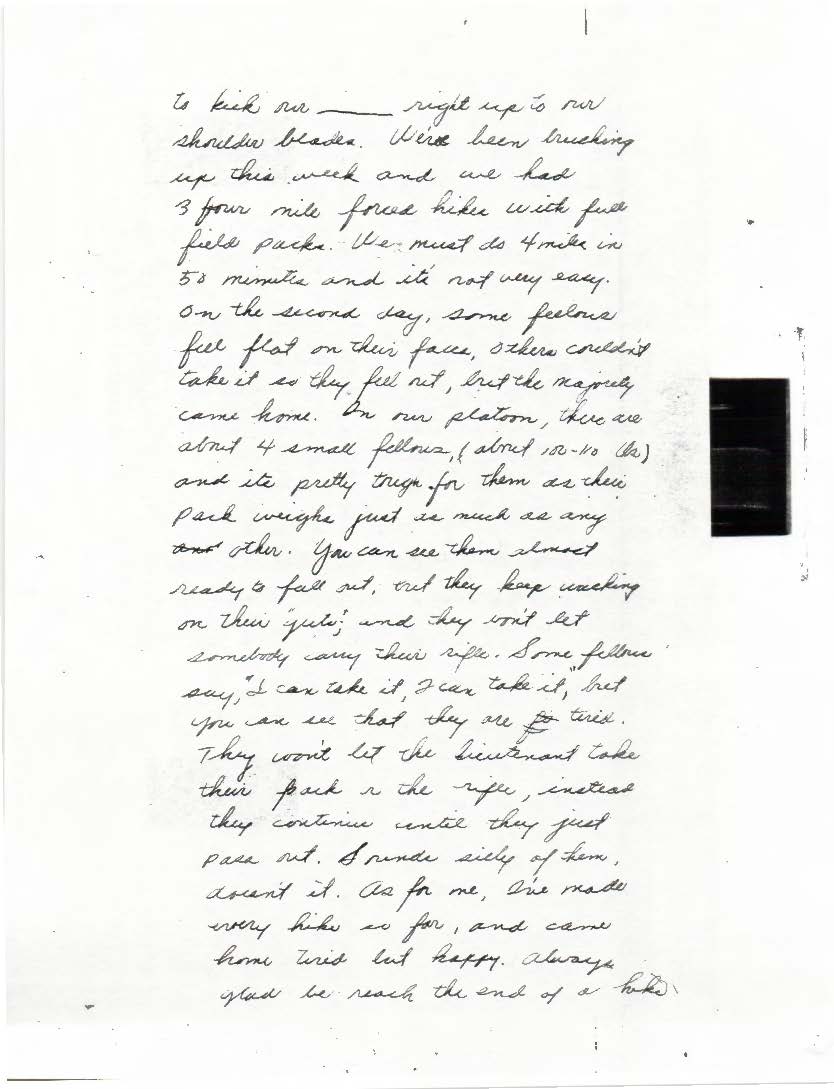 to kick our ______ right up to our
shoulder blades. We've been brushing
up this week and we had
3 four mile forced hikes with full
field packs. We must do 4 miles in
50 minutes and it's not very easy.
On the second day, some feelows
fell flat on their faces, others couldn't
take it so they fell out, but the majority
came home. In our platoon, there are
about 4 small fellows, (about 100-110 lbs)
and its pretty tough for them as their
pack weighs just as much as any
other. You can see them almost
ready to fall out, but they keep walking
on their "guts", and they won't let
somebody carry their rifle. Some fellows
say, "I can take it, I can take it," but
you can see that they are tired.
They won't let the lieutenant take
their pack or the rifle, instead
they continue until they just
pass out. Sounds silly of them,
doesn't it. As for me, I've made
every hike so far, and came
home tired but happy. Always
glad be reach the end of a hike